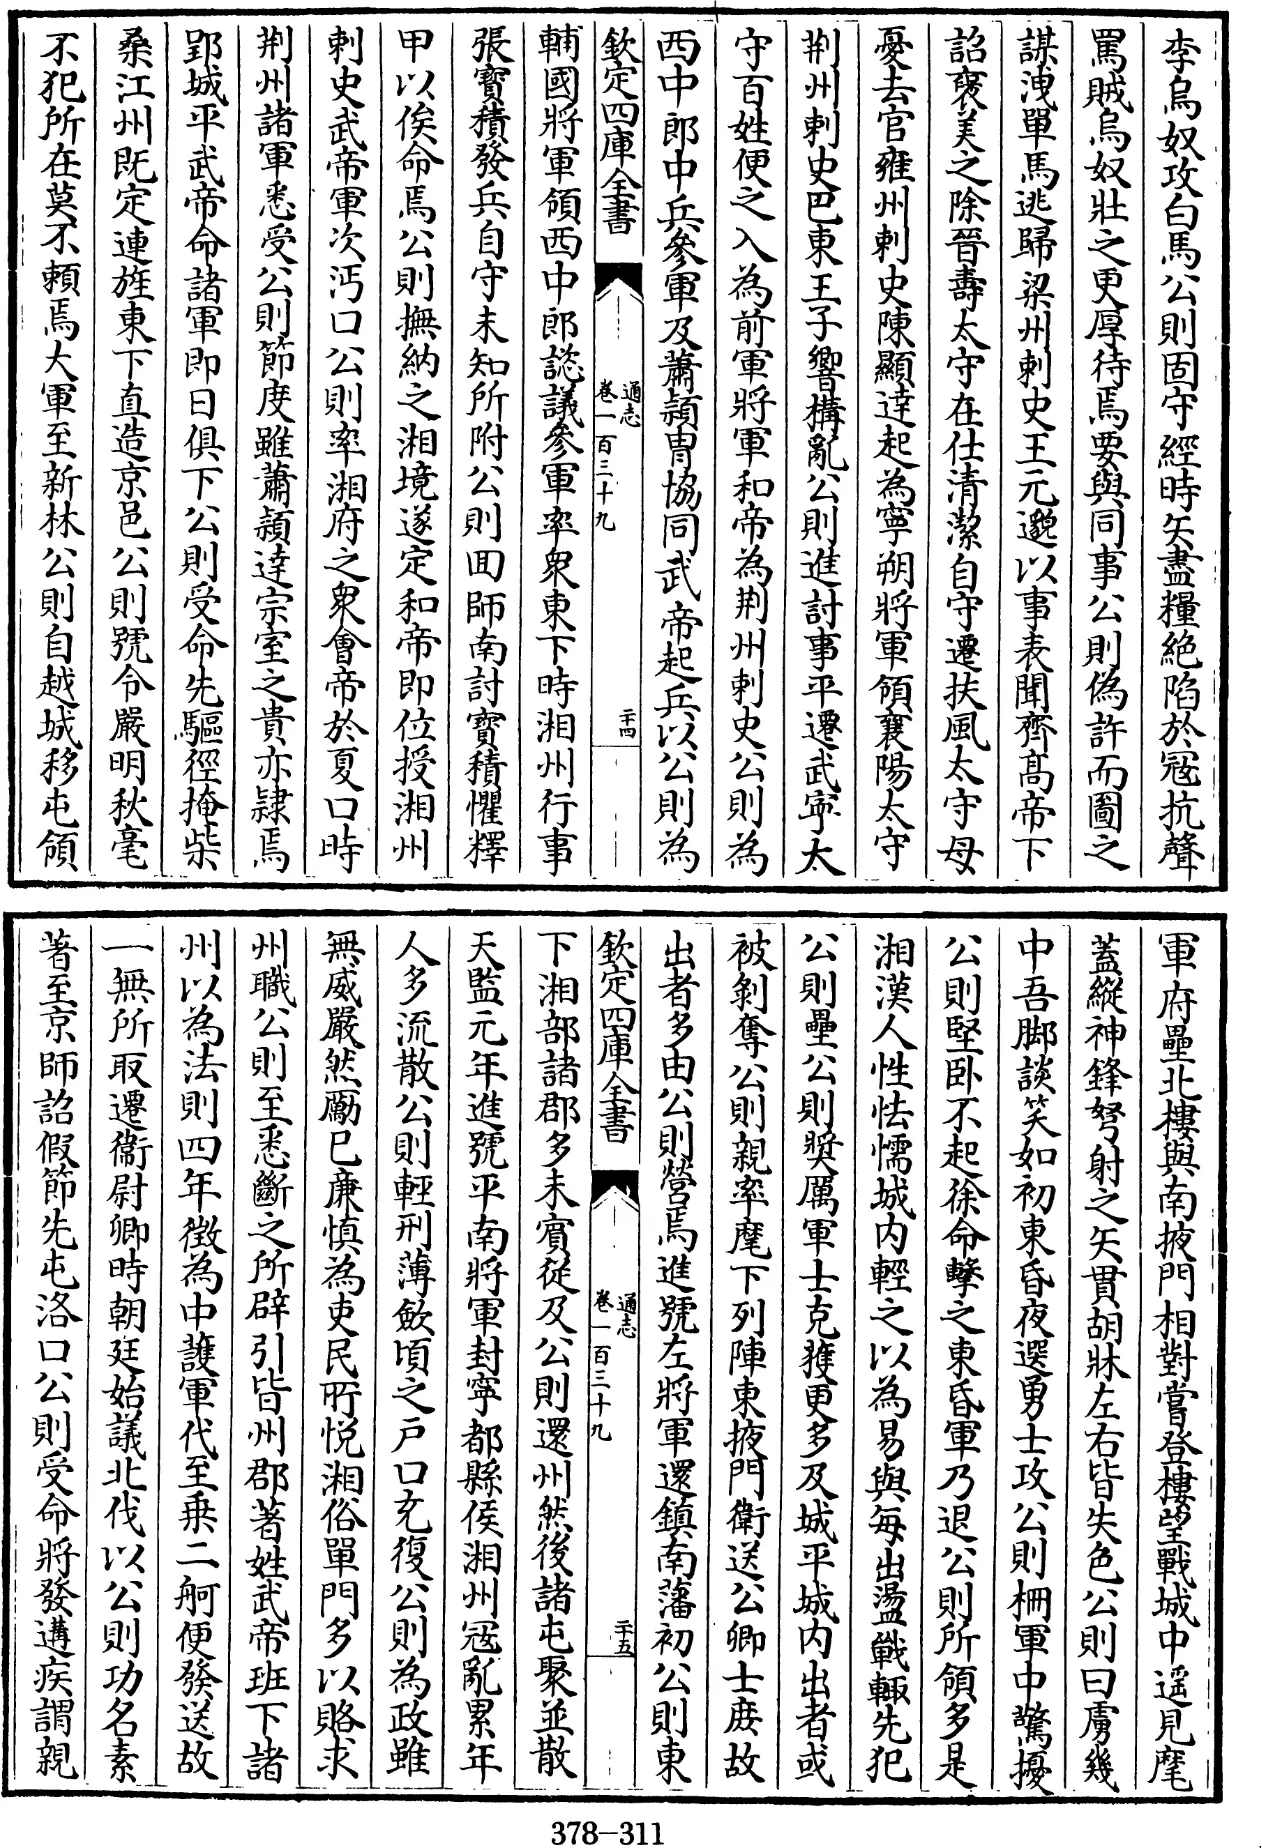 李烏奴攻白馬公則固守經時矢盡糧絶陷於冦抗聲
罵賊烏奴壯之更厚待焉要與同事公則偽許而圖之
謀洩單馬逃歸梁州刺史王元邈以事表聞齊髙帝下
詔褒美之除晉壽太守在仕清潔自守遷扶風太守母
憂去官雍州刺史陳顯逹起為寧朔將軍領襄陽太守
荆州刺史巴東王子響構亂公則進討事平遷武寜太
守百姓便之入為前軍將軍和帝為荆州刺史公則為
西中郎中兵參軍及蕭頴胄協同武帝起兵以公則為
欽定四庫全書
通志
卷一百三十九
二十四
輔國將軍領西中郎諮議參軍率衆東下時湘州行事
張寳積發兵自守未知所附公則囬師南討寳積懼釋
甲以俟命焉公則撫納之湘境遂定和帝即位授湘州
刺史武帝軍次沔口公則率湘府之衆會帝於夏口時
荆州諸軍悉受公則節度雖蕭頴逹宗室之貴亦隷焉
郢城平武帝命諸軍即日俱下公則受命先驅徑掩柴
桑江州既定連旌東下直造京邑公則號令嚴明秋毫
不犯所在莫不頼焉大軍至新林公則自越城移屯領
軍府壘北樓與南掖門相對嘗登樓望戰城中遥見麾
葢縱神鋒弩射之矢貫胡牀左右皆失色公則曰虜幾
中吾脚談笑如初東昏夜選勇士攻公則柵軍中驚擾
公則堅卧不起徐命擊之東昏軍乃退公則所領多是
湘漢人性怯懦城内輕之以為易與每出盪戰輙先犯
公則壘公則奬厲軍士克獲更多及城平城内出者或
被剝奪公則親率麾下列陣東掖門衛送公卿士庶故
出者多由公則營焉進號左將軍還鎮南藩初公則東
欽定四庫全書
通志
卷一百三十九
二十五
下湘部諸郡多未賓從及公則還州然後諸屯聚並散
天監元年進號平南將軍封寧都縣侯湘州冦亂累年
人多流散公則輕刑薄斂頃之户口充復公則為政雖
無威嚴然勵已廉慎為吏民所悦湘俗單門多以賂求
州職公則至悉斷之所辟引皆州郡著姓武帝班下諸
州以為法則四年徴為中䕶軍代至乗二舸便發送故
一無所取遷衞尉卿時朝廷始議北伐以公則功名素
著至京師詔假節先屯洛口公則受命將發遘疾謂親
378-311